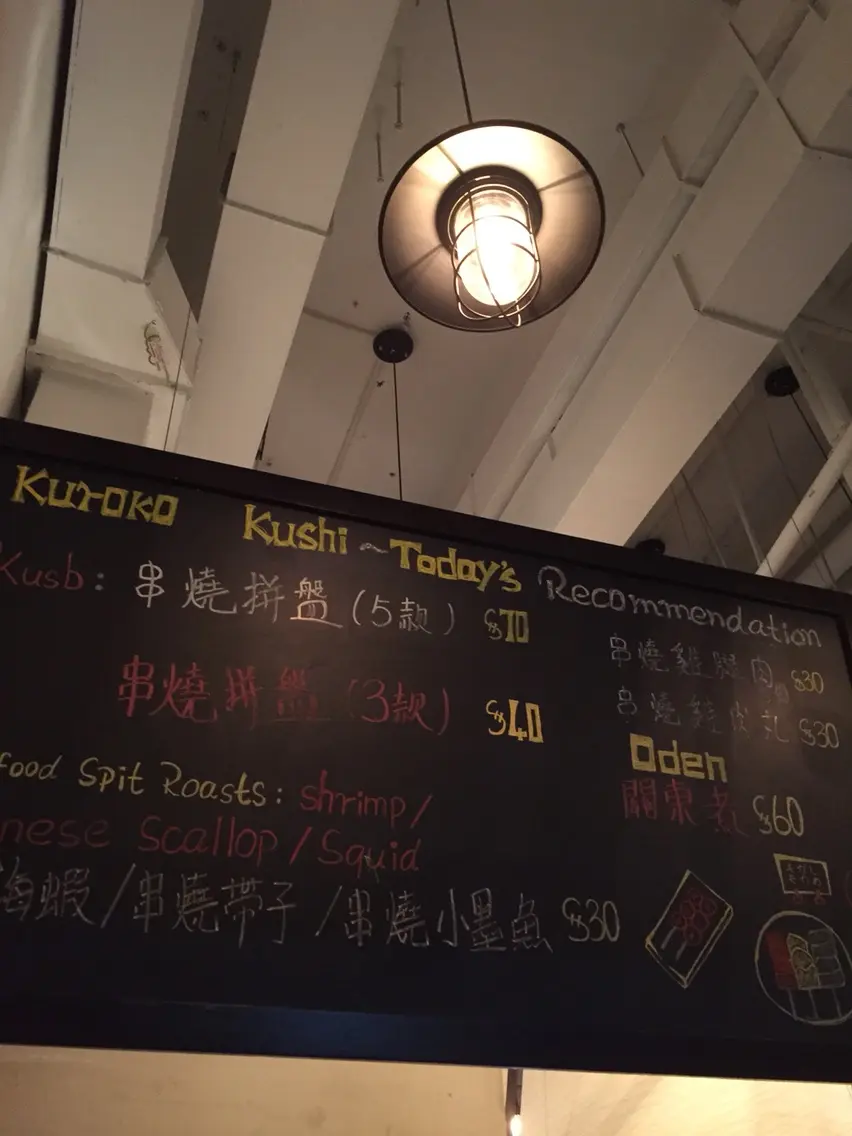 Kuroko Kushi ~ Today's Recommendation
Kusb: 串燒拼盤 (5款) $70
串燒拼盤 (3款) $40
food Spit Roasts: shrimp /
nese Scallop / Squid
海蝦 / 串燒帶子 / 串燒小墨魚 $30
串燒雞腿肉 $30
串燒 $30
Oden
關東煮 $60